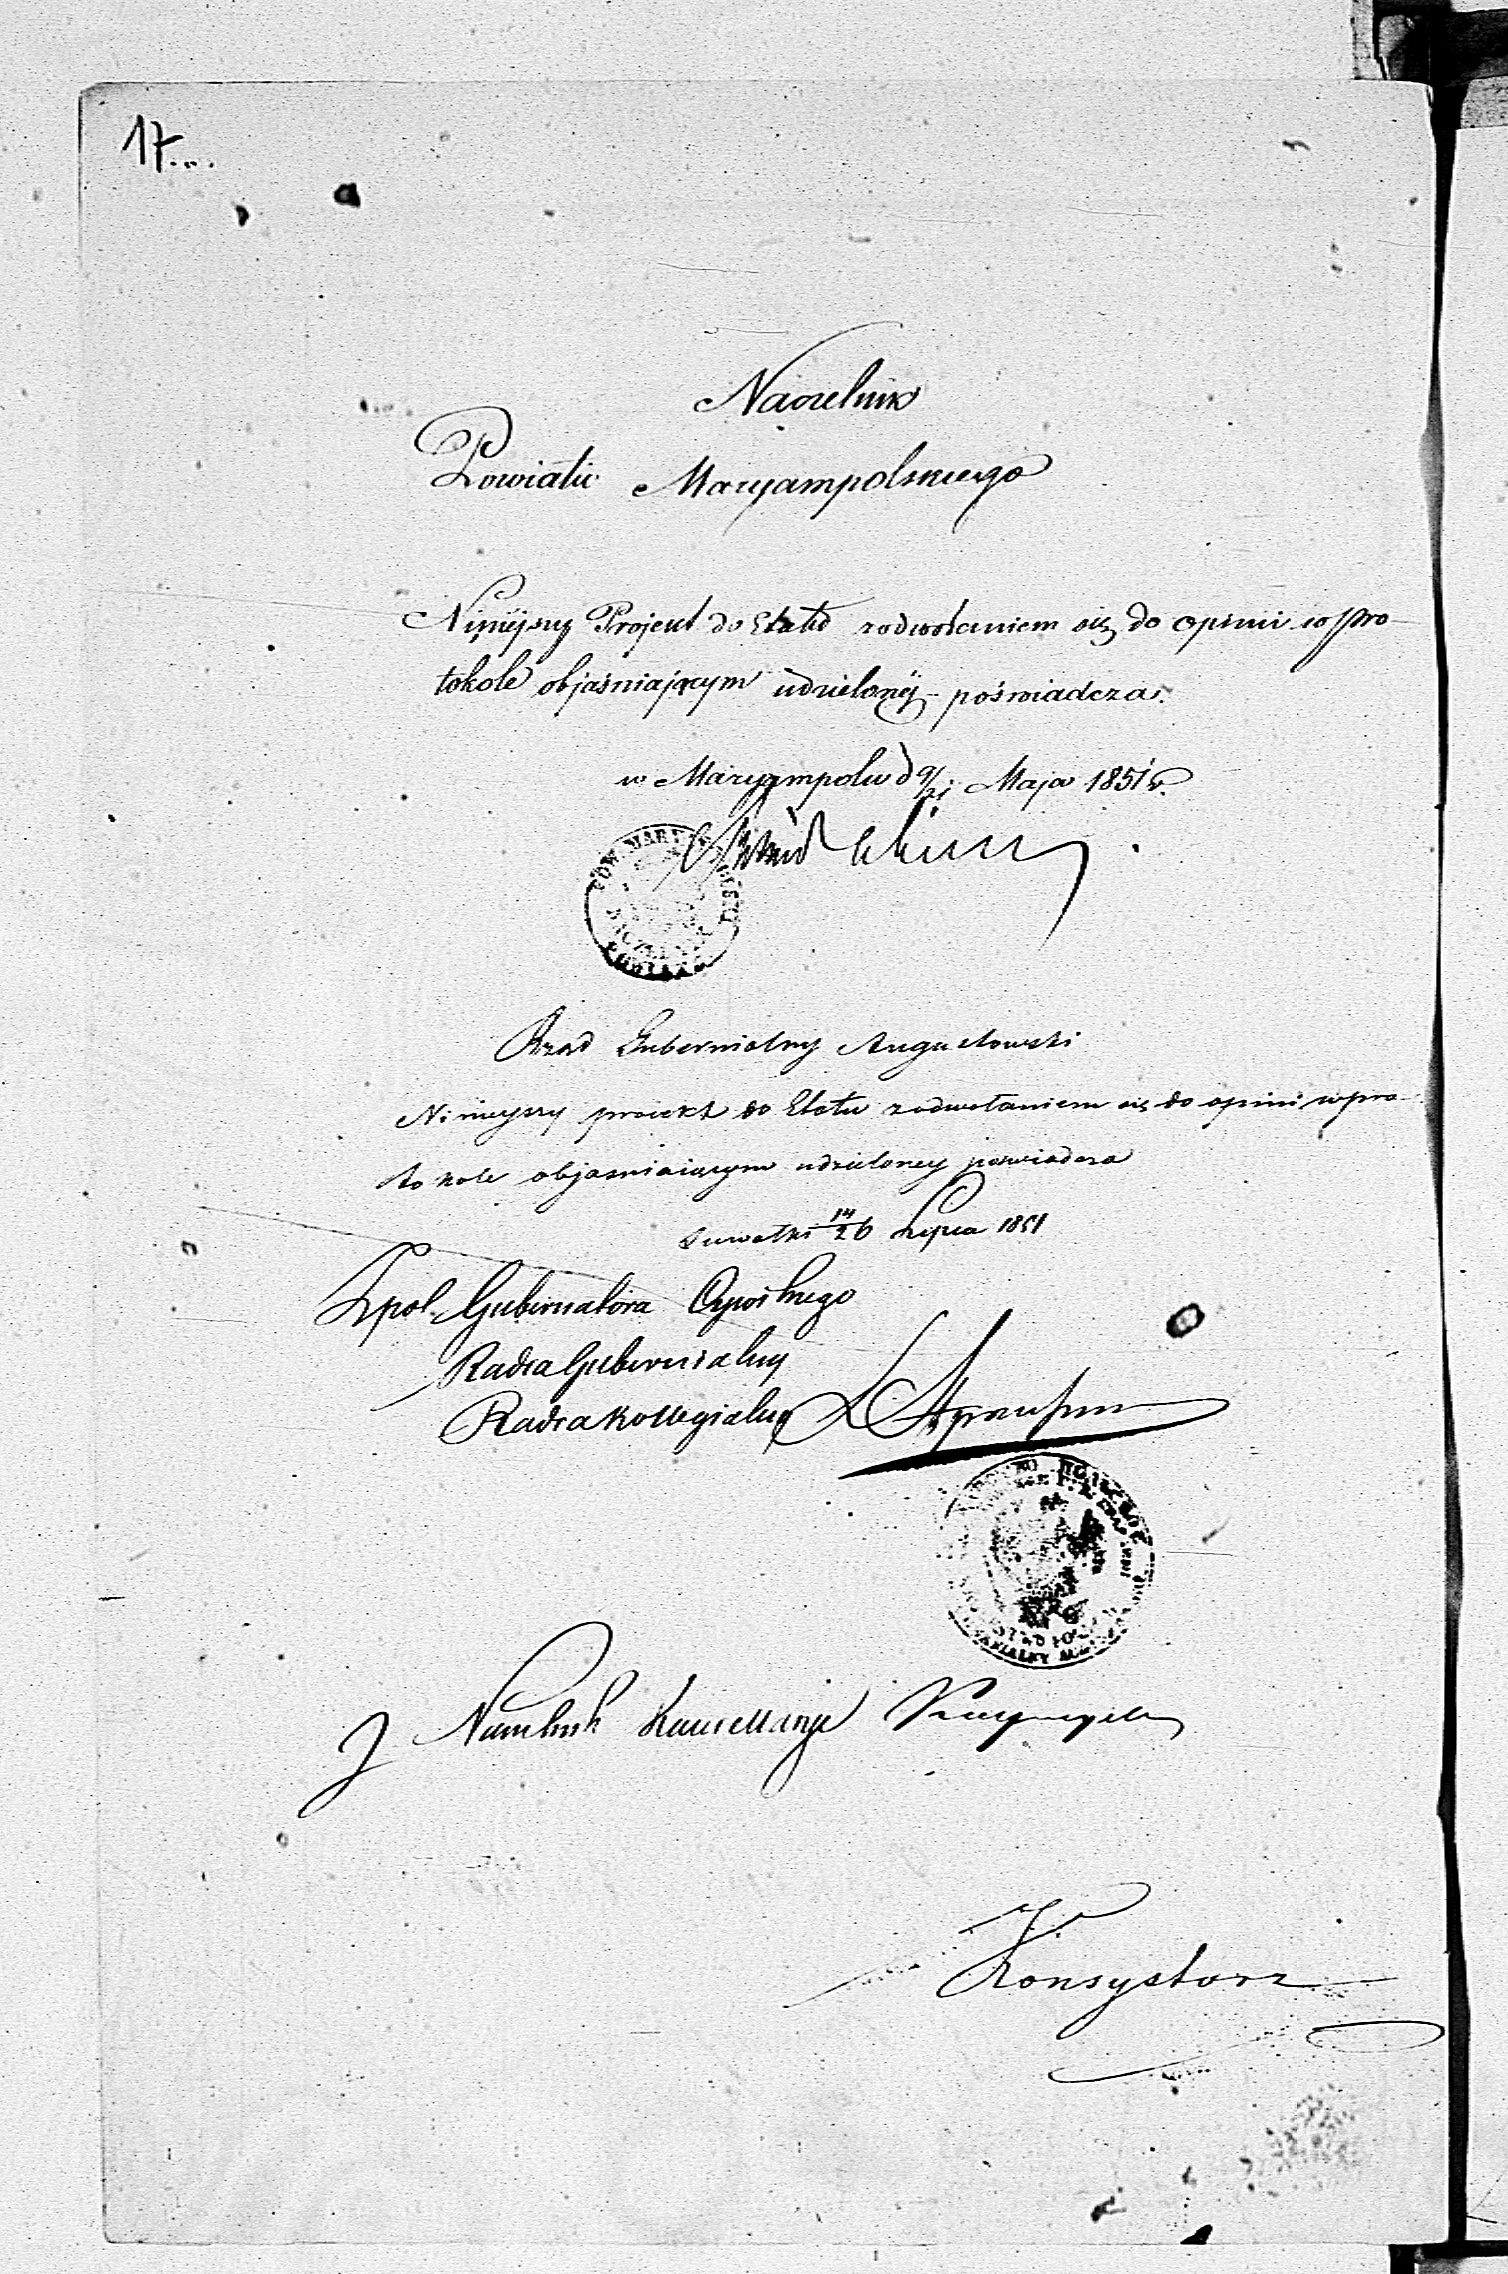 17...
Naczelnik
Powiatu Maryampolskiego
Niniejszy Projekt do Etatu z odwołaniem się do opinii w Pro-
tokole objaśniającym udzielonéj - poświadcza.
w Maryampolu d 9/21 Maja 1851 r.
POW. MARYAMPOLSKI
Rząd Gubernialny Augustowski
Ninieyszy proiekt do Etatu z odwołaniem się do opinii w pro-
tokole objasniaiącym udzieloney poswiadcza
Suwałki 14/26 Lipca 1851
Gubernatora Cywilnego
Radca Gubernialny
Radca Kollegialny
J Naczelnik Kancellaryi
Konsystorz